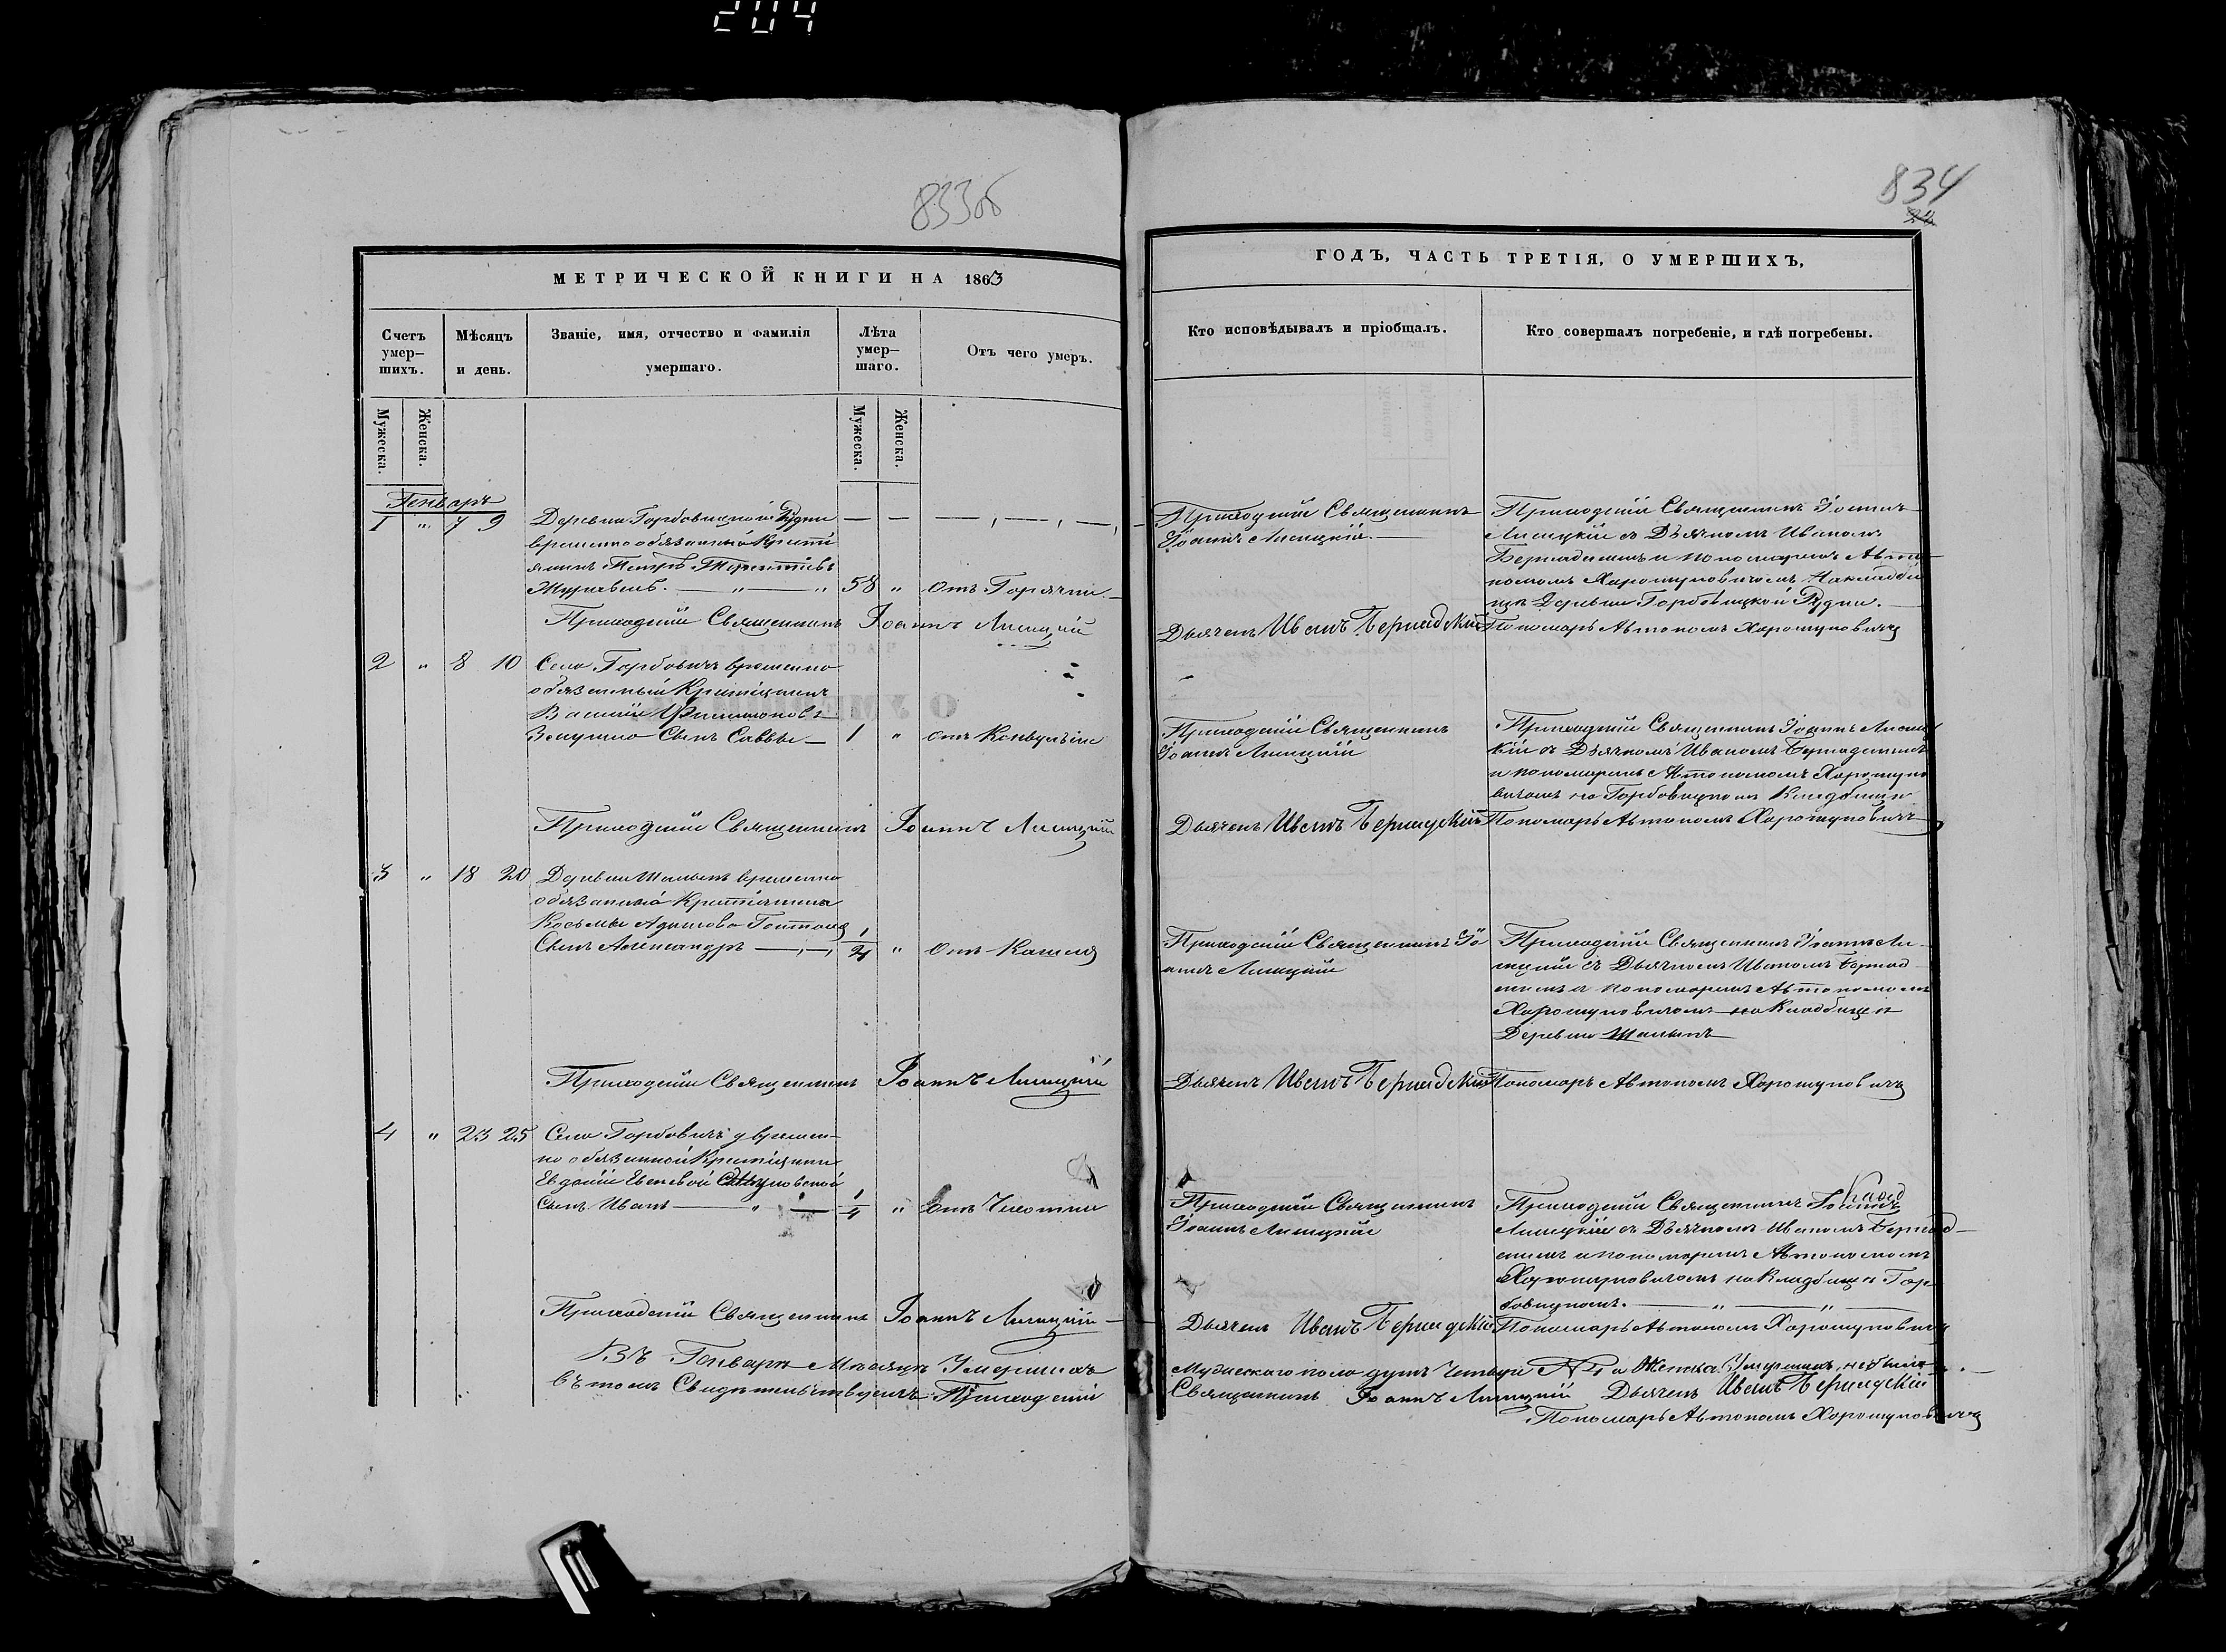 204
833об
МЕТРИЧЕСКОЙ КНИГИ НА 1863
Счетъ умер-шихъ.
Мѣсяцъ и день.
Званіе, имя, отчество и фамилія умершаго.
Лѣта умер-шаго.
Отъ чего умеръ.
Мужеска.
Женска.
Мужеска.
Женска.
Генварь
1 " 7 9 Деревни Горбовицкой Рудни
временно обязанный Крестья
нинъ Петръ Терентіевъ
Журавель. — " — " 58 " Отъ Горячки
Приходскій Священникъ Іоаннъ Лисицкій
2 " 8 10 Села Горбовичъ временно
обязанный Крестьянинъ
Василій Филимоновъ
Сынъ Саввы — 1 " отъ Конвульсіи
Приходскій Священникъ Іоаннъ Лисицкій
3 " 18 20 Деревни временно
обязаннаго Крестьянина
Козьмы
Сынъ Александръ — 1/2 " Отъ Кашля
Приходскій Священникъ Іоаннъ Лисицкій
4 " 23 25 Села Горбовичъ у времен-
но обязанной Крестьянки
Евдокіи
Сынъ Иванъ — " — 1/4 " Отъ Чахотки
Приходскій Священникъ Іоаннъ Лисицкій
Въ Генварѣ Мѣсяцѣ Умершихъ
въ томъ Свидѣтельствуемъ Приходскій
834
ГОДЪ, ЧАСТЬ ТРЕТІЯ, О УМЕРШИХЪ,
Кто исповѣдывалъ и пріобщалъ.
Кто совершалъ погребеніе, и гдѣ погребены.
Приходскій Священникъ
Іоаннъ Лисицкій. —
Приходскій Священникъ Іоаннъ
Лисицкій съ Дьячкомъ Иваномъ
Бернадскимъ и пономаремъ Авто
номомъ Хорошуновичемъ На кладби
щѣ Деревни Горбовицкой Рудни. —
Дьячекъ Иванъ Бернадскій Пономарь Автономъ Хорошуновичъ
Приходскій Священникъ
Іоаннъ Лисицкій
Приходскій Священникъ Іоаннъ Лисиц
кій съ Дьячкомъ Иваномъ Бернадскимъ
и пономаремъ Автономомъ Хорошуно
вичемъ на Горбовицкомъ Кладбищѣ
Дьячекъ Иванъ Бернадскій Пономарь Автономъ Хорошуновичъ
Приходскій Священникъ Іо
аннъ Лисицкій
Приходскій Священникъ Іоаннъ Ли
сицкій съ Дьячкомъ Иваномъ Бернад
скимъ и пономаремъ Автономомъ
Хорошуновичемъ на Кладбищѣ
Деревни
Дьячекъ Иванъ Бернадскій Пономарь Автономъ Хорошуновичъ
Приходскій Священникъ
Іоаннъ Лисицкій
Приходскій Священникъ Іоаннъ
Лисицкій съ Дьячкомъ Иваномъ Бернад-
скимъ и пономаремъ Автономомъ
Хорошуновичемъ на Кладбищѣ Гор
бовицкомъ. — " — " —
Дьячекъ Иванъ Бернадскій Пономарь Автономъ Хорошуновичъ
Мужескаго пола душъ Четыри № 4 а Женска Умершихъ небыло
Священникъ Іоаннъ Лисицкій Дьячекъ Иванъ Бернадскій
Пономарь Автономъ Хорошуновичъ